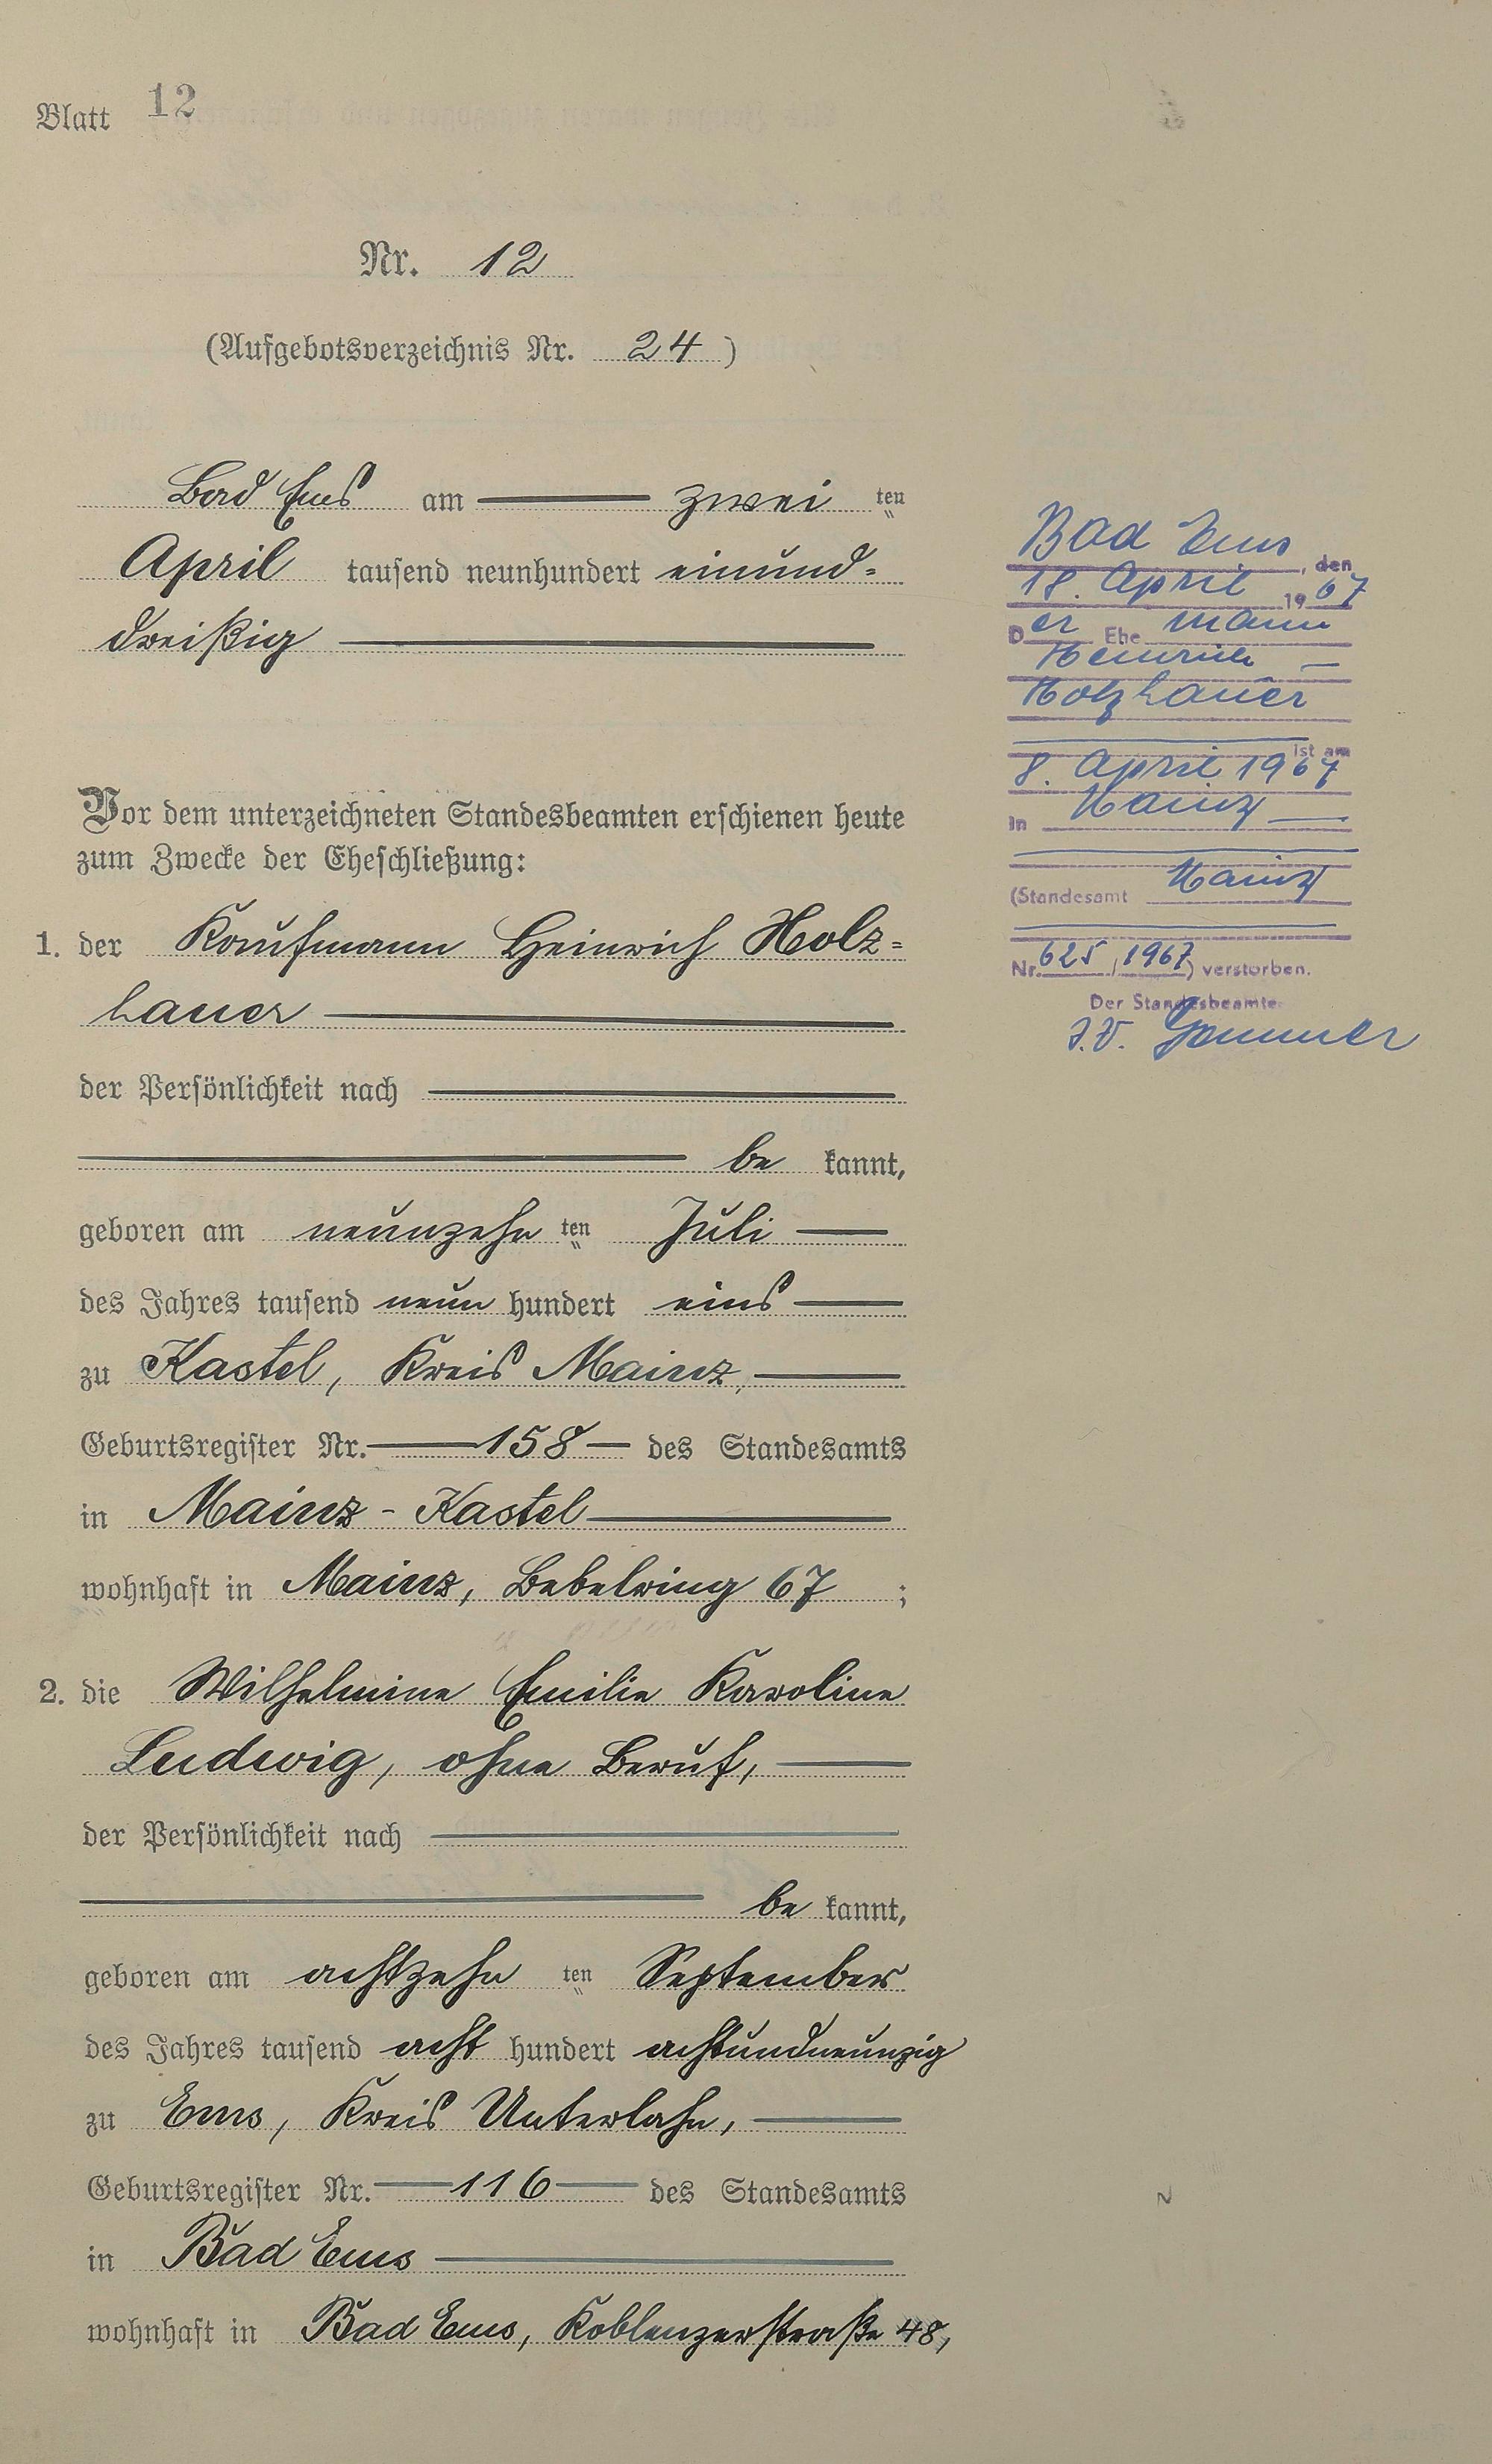 Blatt 12
Nr. 12
(Aufgebotsverzeichnis Nr. 24)
Bad Ems am zwei ten
April tausend neunhundert einund-
dreißig
Vor dem unterzeichneten Standesbeamten erschienen heute
zum Zwecke der Eheschließung:
1. der Kaufmann Heinrich Holz-
hauer
der Persönlichkeit nach
be kannt,
geboren am neunzehn ten Juli
des Jahres tausend neun hundert eins
zu Kastel, Kreis Mainz,
Geburtsregister Nr. 158 des Standesamts
in Mainz-Kastel
wohnhaft in Mainz, Bebelring 67 ;
2. die Wilhelmine Emilie Karoline
Ludwig, ohne Beruf,
der Persönlichkeit nach
be kannt,
geboren am achtzehn ten September
des Jahres tausend acht hundert achtundneunzig
zu Ems, Kreis Unterlahn,
Geburtsregister Nr. 116 des Standesamts
in Bad Ems
wohnhaft in Bad Ems, Koblenzerstraße 48,
Bad Ems, den
18. April 1967
Der Ehemann
Heinrich
Holzhauer
ist am
8. April 1967
in Mainz
(Standesamt Mainz
Nr. 625/1967) verstorben.
Der Standesbeamte
J.V.